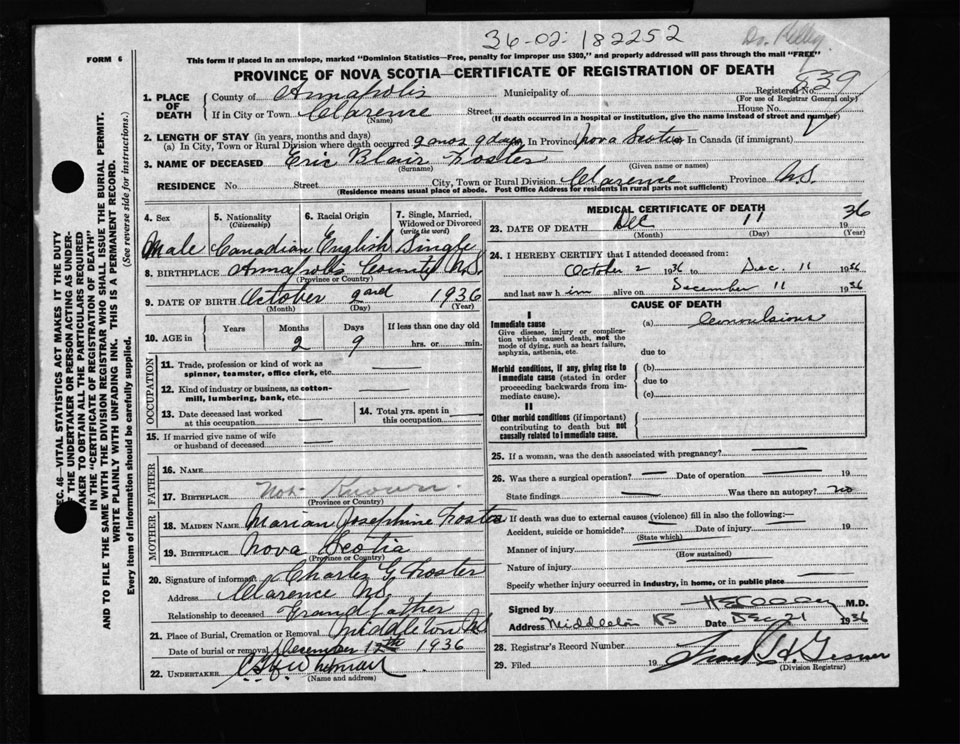 36-02: 182252
Dr. Kelley
FORM 6
This form if placed in an envelope, marked "Dominion Statistics—Free, penalty for improper use $300," and properly addressed will pass through the mail "FREE"
PROVINCE OF NOVA SCOTIA—CERTIFICATE OF REGISTRATION OF DEATH
839
1. PLACE OF DEATH
County of Annapolis Municipality of Registered No.
(For use of Registrar General only)
If in City or Town Clarence Street House No.
(Name) (If death occurred in a hospital or institution, give the name instead of street and number)
2. LENGTH OF STAY (in years, months and days)
(a) In City, Town or Rural Division where death occurred 2 mos 9 days In Province Nova Scotia In Canada (if immigrant)
3. NAME OF DECEASED Eric Blair Foster
(Surname) (Given name or names)
RESIDENCE No Street City, Town or Rural Division Clarence Province N.S
(Residence means usual place of abode. Post Office Address for residents in rural parts not sufficient)
4. Sex 5. Nationality (Citizenship) 6. Racial Origin 7. Single, Married, Widowed or Divorced (write the word)
Male Canadian English Single
8. BIRTHPLACE Annapolis County N.S.
(Province or Country)
9. DATE OF BIRTH October 2nd 1936
(Month) (Day) (Year)
10. AGE in Years Months Days If less than one day old
2 9 hrs. or min.
OCCUPATION
11. Trade, profession or kind of work as spinner, teamster, office clerk, etc.
12. Kind of industry or business, as cotton-mill, lumbering, bank, etc.
13. Date deceased last worked at this occupation
14. Total yrs. spent in this occupation
15. If married give name of wife or husband of deceased
FATHER
16. NAME
17. BIRTHPLACE Not Known.
(Province or Country)
MOTHER
18. MAIDEN NAME Marian Josephine Foster
19. BIRTHPLACE Nova Scotia
(Province or Country)
20. Signature of informant Charles G. Foster
Address Clarence N.S.
Relationship to deceased Grandfather
21. Place of Burial, Cremation or Removal Middleton N.S
Date of burial or removal December 1936
22. UNDERTAKER Whitman
(Name and address)
MEDICAL CERTIFICATE OF DEATH
23. DATE OF DEATH Dec 11 36
(Month) (Day) (Year)
24. I HEREBY CERTIFY that I attended deceased from:
October 2 1936 to Dec. 11 1936
and last saw him alive on December 11 1936
CAUSE OF DEATH
I
Immediate cause (a) Convulsions
Give disease, injury or complication which caused death, not the mode of dying, such as heart failure, asphyxia, asthenia, etc.
due to
Morbid conditions, if any, giving rise to immediate cause (stated in order proceeding backwards from immediate cause).
(b)
due to
(c)
II
Other morbid conditions (if important) contributing to death but not causally related to immediate cause.
25. If a woman, was the death associated with pregnancy?
26. Was there a surgical operation? Date of operation 19
State findings Was there an autopsy? no
If death was due to external causes (violence) fill in also the following:—
Accident, suicide or homicide? Date of injury 19
(State which)
Manner of injury
(How sustained)
Nature of injury
Specify whether injury occurred in industry, in home, or in public place
Signed by M.D.
Address Middleton Date Dec 21 1936
28. Registrar's Record Number
29. Filed 19 Frank H. Gesner
(Division Registrar)
SEC. 46—VITAL STATISTICS ACT MAKES IT THE DUTY OF THE UNDERTAKER OR PERSON ACTING AS UNDERTAKER TO OBTAIN ALL THE PARTICULARS REQUIRED IN THE "CERTIFICATE OF REGISTRATION OF DEATH"
AND TO FILE THE SAME WITH THE DIVISION REGISTRAR WHO SHALL ISSUE THE BURIAL PERMIT.
WRITE PLAINLY WITH UNFADING INK. THIS IS A PERMANENT RECORD.
Every item of information should be carefully supplied. (See reverse side for instructions.)